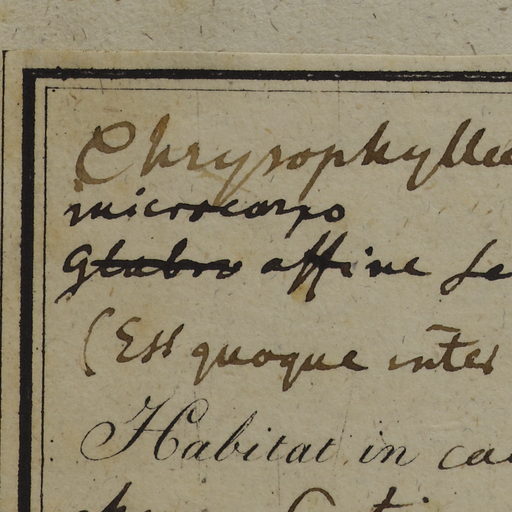 Chrysophyllu
microcarpo
Glabro affine Se
(Ess quoque inter
Habitat in ca